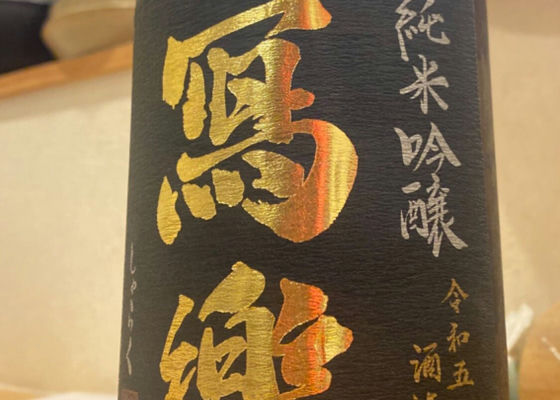 純米吟醸
令和五
酒
寫樂
しゃらく